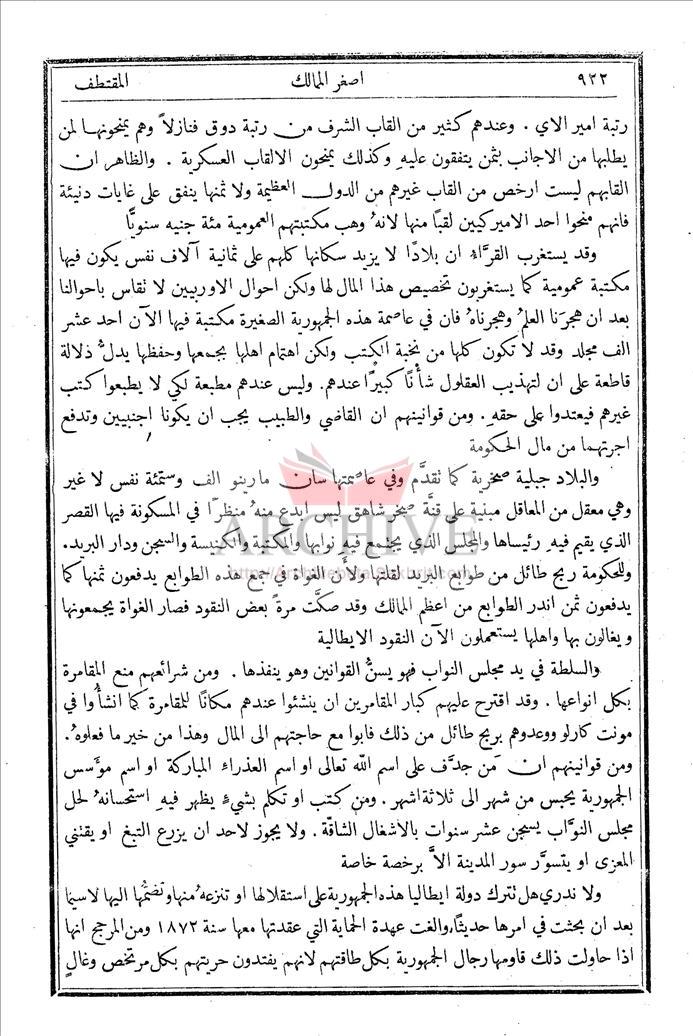 ٩٢٢ اصغر الممالك المقتطف
رتبة امير الاي . وعندهم كثير من القاب الشرف من رتبة دوق فنازلاً وهم يمنحونها لمن
يطلبها من الاجانب بثمن يتفقون عليهِ وكذلك يمنحون الالقاب العسكرية . والظاهر ان
القابهم ليست ارخص من القاب غيرهم من الدول العظيمة ولا ثمنها ينفق على غايات دنيئة
فانهم منحوا احد الاميركيين لقباً منها لانهُ وهب مكتبتهم العمومية مئة جنيه سنويًّا
وقد يستغرب القرَّاء ان بلادًا لا يزيد سكانها كلهم على ثمانية آلاف نفس يكون فيها
مكتبة عمومية كما يستغربون تخصيص هذا المال لها ولكن احوال الاوربيين لا نقاس باحوالنا
بعد ان هجرَنا العلمُ وهجرناهُ فان في عاصمة هذه الجمهورية الصغيرة مكتبة فيها الآن احد عشر
الف مجلد وقد لا تكون كلها من نخبة الكتب ولكن اهتمام اهلها بجمعها وحفظها يدلُّ دلالة
قاطعة على ان لتهذيب العقول شأنًا كبيرًا عندهم. وليس عندهم مطبعة لكي لا يطبعوا كتب
غيرهم فيعتدوا على حقهِ . ومن قوانينهم ان القاضي والطبيب يجب ان يكونا اجنبيين وتدفع
اجرتهما من مال الحكومة
والبلاد جبلية صخرية كما تقدَّم وفي عاصمتها سان مارينو الف وستمئة نفس لا غير
وهي معقل من المعاقل مبنية على قنَّة صخر شاهق ليس ابدع منهُ منظرًا في المسكونة فيها القصر
الذي يقيم فيهِ رئيساها والمجلس الذي يجتمع فيهِ نوابها والمكتبة والكنيسة والسجن ودار البريد.
وللحكومة ربح طائل من طوابع البريد لقلتها ولأن الغواة في جمع هذه الطوابع يدفعون ثمنها كما
يدفعون ثمن اندر الطوابع من اعظم الممالك وقد صكَّت مرةً بعض النقود فصار الغواة يجمعونها
ويغالون بها واهلها يستعملون الآن النقود الايطالية
والسلطة في يد مجلس النواب فهو يسنُّ القوانين وهو ينفذها . ومن شرائعهم منع المقامرة
بكل انواعها . وقد اقترح عليهم كبار المقامرين ان ينشئوا عندهم مكانًا للمقامرة كما انشأُوا في
مونت كارلو ووعدوهم بربح طائل من ذلك فابوا مع حاجتهم الى المال وهذا من خير ما فعلوهُ.
ومن قوانينهم ان مَن جدَّف على اسم الله تعالى او اسم العذراء المباركة او اسم مؤسس
الجمهورية يحبس من شهر الى ثلاثة اشهر . ومن كتب او تكلم بشيءٍ يظهر فيهِ استحسانهُ لحل
مجلس النوَّاب يسجن عشر سنوات بالاشغال الشاقة . ولا يجوز لاحد ان يزرع التبغ او يقتني
المعزى او يتسوَّر سور المدينة الاَّ برخصة خاصة
ولا ندري هل تترك دولة ايطاليا هذه الجمهورية على استقلالها او تنزعهُ منها وتضمُّها اليها لاسيما
بعد ان بحثت في امرها حديثًا، والغت عهدة الحماية التي عقدتها معها سنة ١٨٧٢ ومن المرجح انها
اذا حاولت ذلك قاومها رجال الجمهورية بكل طاقتهم لانهم يفتدون حريتهم بكل مرتخص وغالٍ
ARCHIVE